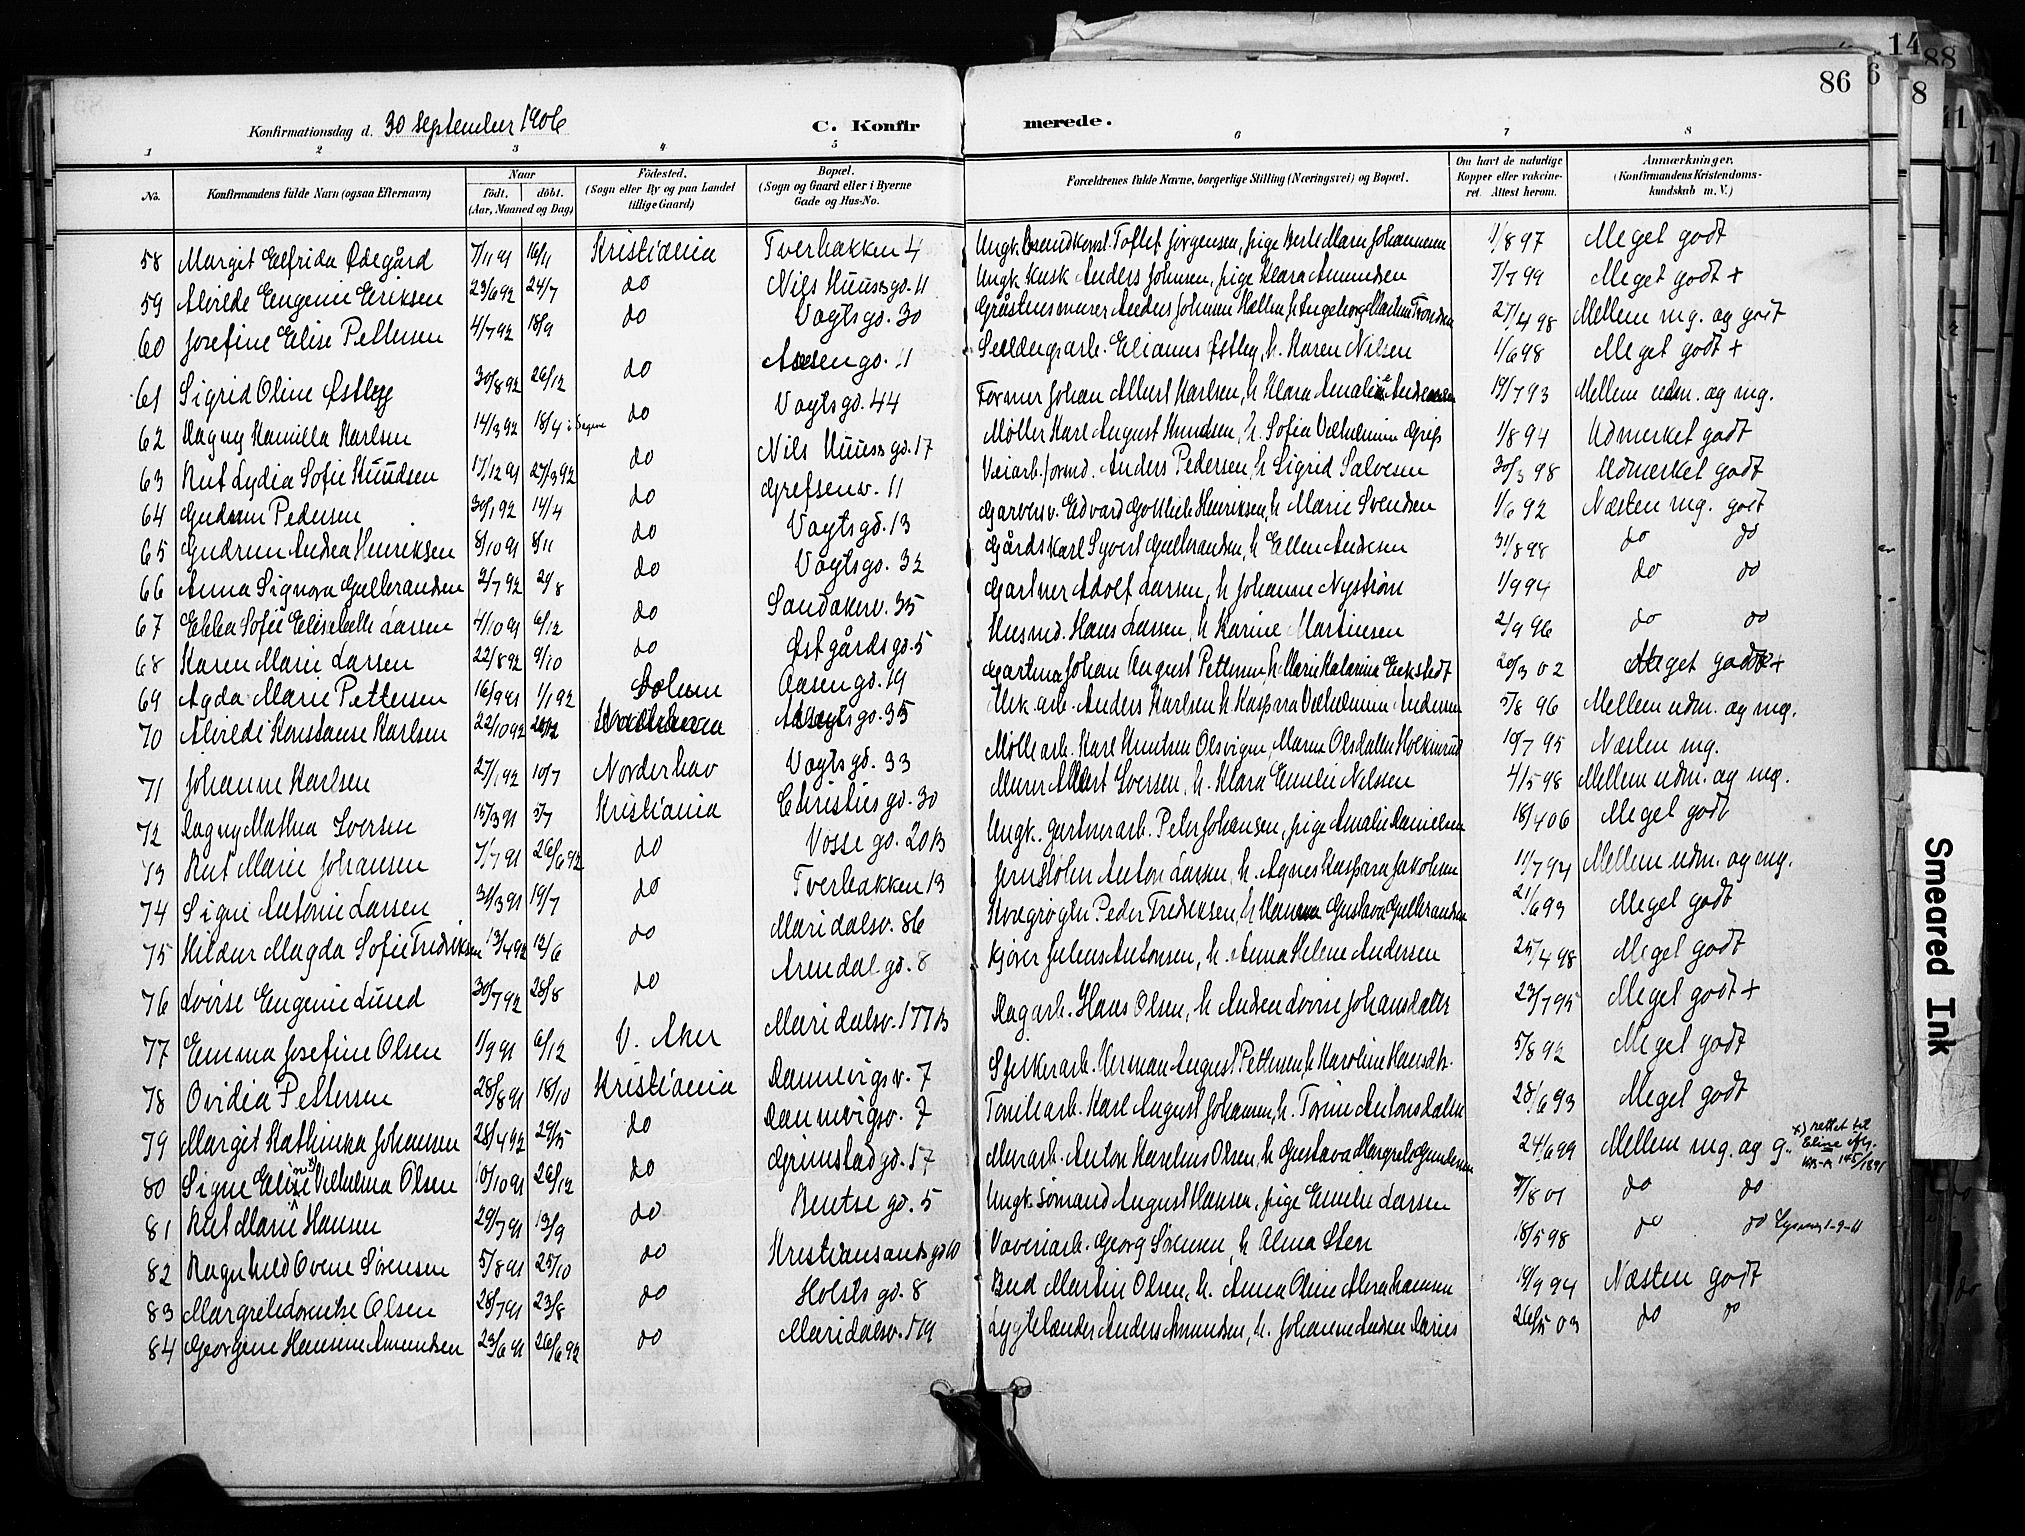 14
88
86
6
8
Konfirmationsdag d. 30 September 1906
C. Konfir
merede.
1 2 3 4 5 6 7 8
No.
Konfirmandens fulde Navn (ogsaa Efternavn)
Naar
født. døbt.
(Aar, Maaned og Dag)
Fødested.
(Sogn eller By og paa Landet
tillige Gaard)
Bopæl.
(Sogn og Gaard eller i Byerne
Gade og Hus-No.
Forældrenes fulde Navne, borgerlige Stilling (Næringsvei) og Bopæl.
Om havt de naturlige
Kopper eller vakcine-
ret. Attest herom.
Anmærkninger.
(Konfirmandens Kristendoms-
kundskab m. V.)
58 Margit Elfrida Ødegård 7/11 91 16/1 Kristiania Tverbakken 4 Ungk. Toflef Jørgensen, pige 1/8 97 Meget godt
59 Alvilde Eugenie Eriksen 23/6 92 24/7 do Nils Huusgd. 11 Ungk. Kusk Anders Johnsen, pige Klara Amundsen 7/7 99 Meget godt +
60 Josefine Elise Pettersen 4/7 92 18/9 do Vogtsgd. 30 27/4 98 Mellem mg. og godt
61 Sigrid Oline Østbye 30/8 92 26/12 do Aasengd. 11 Elianus Østby, h. Karen Nilsen 1/6 98 Meget godt +
62 Dagny Kamilla Karlsen 14/3 92 18/4 do Vogtsgd. 44 Former Johan Albert Karlsen, h. Klara Amalie Andersen 19/7 93 Mellem udm. og mg.
63 Rut Lydia Sofie Knudsen 17/12 91 27/3 92 do Nils Huusgd. 17 Møller Karl August Knudsen, h. Sofia Vilhelmine 1/8 94 Udmerket godt
64 Gudrun Pedersen 30/1 92 14/4 do Grefsenv. 11 Veiarb.formd. Anders Pedersen, h. Sigrid Salvesen 30/3 98 Udmerket godt
65 Gudrun Andrea Henriksen 8/10 91 8/11 do Vogtsgd. 13 Garversv. Edvard Gottlieb Henriksen, h. Marie Svendsen 1/6 92 Næsten mg. godt
66 Anna Signora Gulbrandsen 2/7 92 21/8 do Vogtsgd. 32 Gårdskarl Syvert Gulbrandsen, h. Ellen Andersen 31/8 98 do do
67 Ebba Sofie Elisebeth Larsen 4/10 91 6/12 do Sandakerv. 35 Gartner Adolf Larsen, h. Johanne Nystrøm 1/9 94 do do
68 Karen Marie Larsen 22/8 92 9/10 do Østgårdsgd. 5 Husmd. Hans Larsen, h. Karine Martinsen 2/9 96 do do
69 Agda Marie Pettersen 16/9 91 1/1 92 Solum Aasengd. 19 Gartner Johan August Pettersen h. Marie Katarina Eckstedt 20/3 02 Meget godt +
70 Alvilde Konstanse Karlsen 22/10 92 26/12 35 Mek. arb. Anders Karlsen h. Kaspara Vilhelmine Andersen 5/8 96 Mellem udm. og mg.
71 Johanne Karlsen 27/1 92 10/7 Norderhov Vogtsgd. 33 Møllearb. Karl Knutsen 10/7 95 Næsten mg.
72 Dagny Mathea Iversen 15/3 91 5/7 Kristiania Christiesgd. 30 Murer Albert Iversen, h. Klara Emelie Nilsen 4/5 98 Mellem udm. og mg.
73 Rut Marie Johansen 7/7 91 26/6 92 do Vossegd. 20B Ungk. gartnerarb. Peter Johansen, pige Amalie Danielsen 18/4 06 Meget godt
74 Signe Antonie Larsen 31/3 91 19/7 do Tverbakken 13 Anton Larsen, h. Agnes Kaspara Jakobsen 11/7 94 Mellem udm. og mg.
75 Hildur Magda Sofie Fredriksen 13/4 92 12/6 do Maridalsv. 86 Peder Fredriksen, h. Hanna Gustava Gulbrandsen 21/6 93 Meget godt
76 Lovise Eugenie Lund 30/7 92 28/8 do Arendalsgd. 8 Kjører Julius Antonsen, h. Anna Helene Andersen 25/4 98 Meget godt
77 Emma Josefine Olsen 1/9 91 6/12 V. Aker Maridalsv. 177B Dagarb. Hans Olsen, h. Andrea Lovise Johansdatter 23/7 95 Meget godt +
78 Ovidia Pettersen 28/8 91 18/10 Kristiania Dannevigsv. 7 Herman August Pettersen, h. Karoline Hansdtr. 5/8 92 Meget godt
79 Margit Kathinka Johansen 28/4 92 29/5 do Dannevigsv. 7 Karl August Johansen, h. Torine Antonsdatter 28/6 93 Meget godt
80 Signe Eline x) Vilhelma Olsen 10/10 91 26/12 do Grimstadgd. 17 Murarb. Anton Karelius Olsen, h. Gustava Margrete Gundersen 24/6 99 Mellem mg. og g. x) rettet til Eline
81 Rut Marie Hansen 29/7 91 13/9 do Bentsegd. 5 Ungk. sømand August Hansen, pige Emelie Larsen 7/8 01 do do
82 Ragnhild Ovene Sørensen 5/8 91 25/10 do Kristiansandsgd 10 Væveriarb. Georg Sørensen, h. Alma Sten 18/5 98 do do
83 Margrete Lorentse Olsen 28/7 91 23/8 do Holstsgd. 8 Bud Martin Olsen, h. Anna Oline Abrahamsen 19/9 94 Næsten godt
84 Georgine Hansine Amundsen 23/6 91 26/6 92 do Maridalsv. 519 Lygtetænder Anders Amundsen, h. Johanne Andrea 26/5 03 do do
Smeared Ink